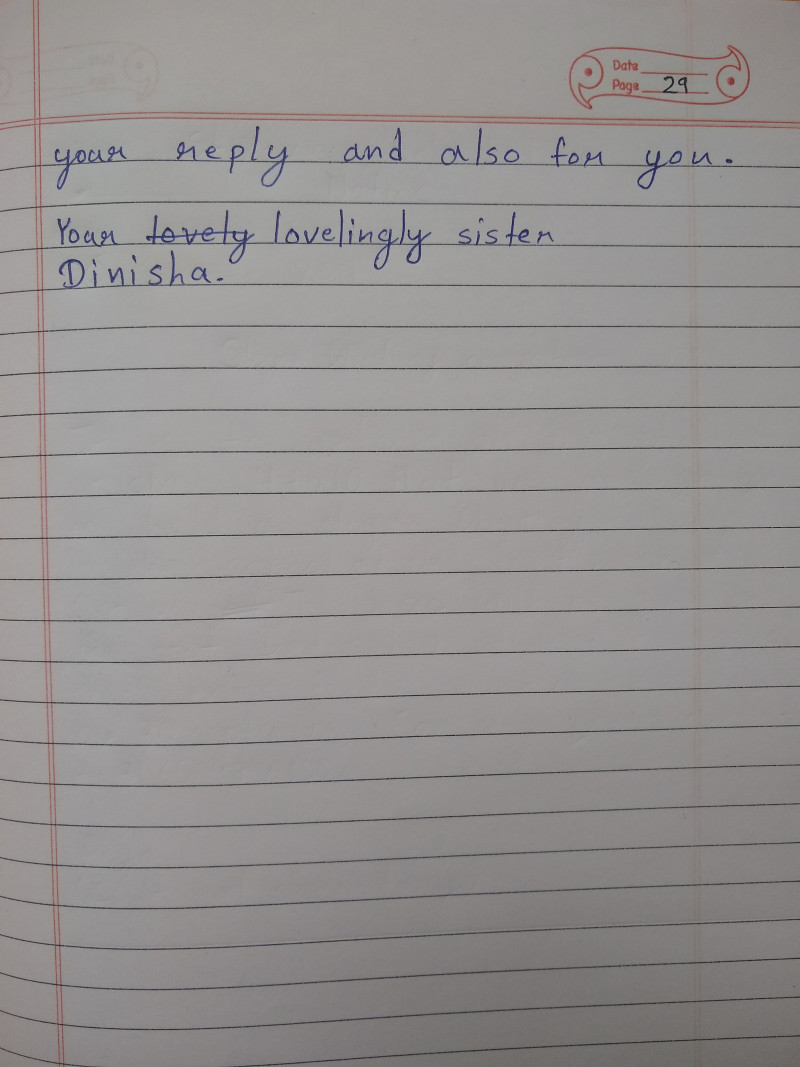 Date
Page 29
your reply and also for you.
Your lovely lovelingly sister
Dinisha.